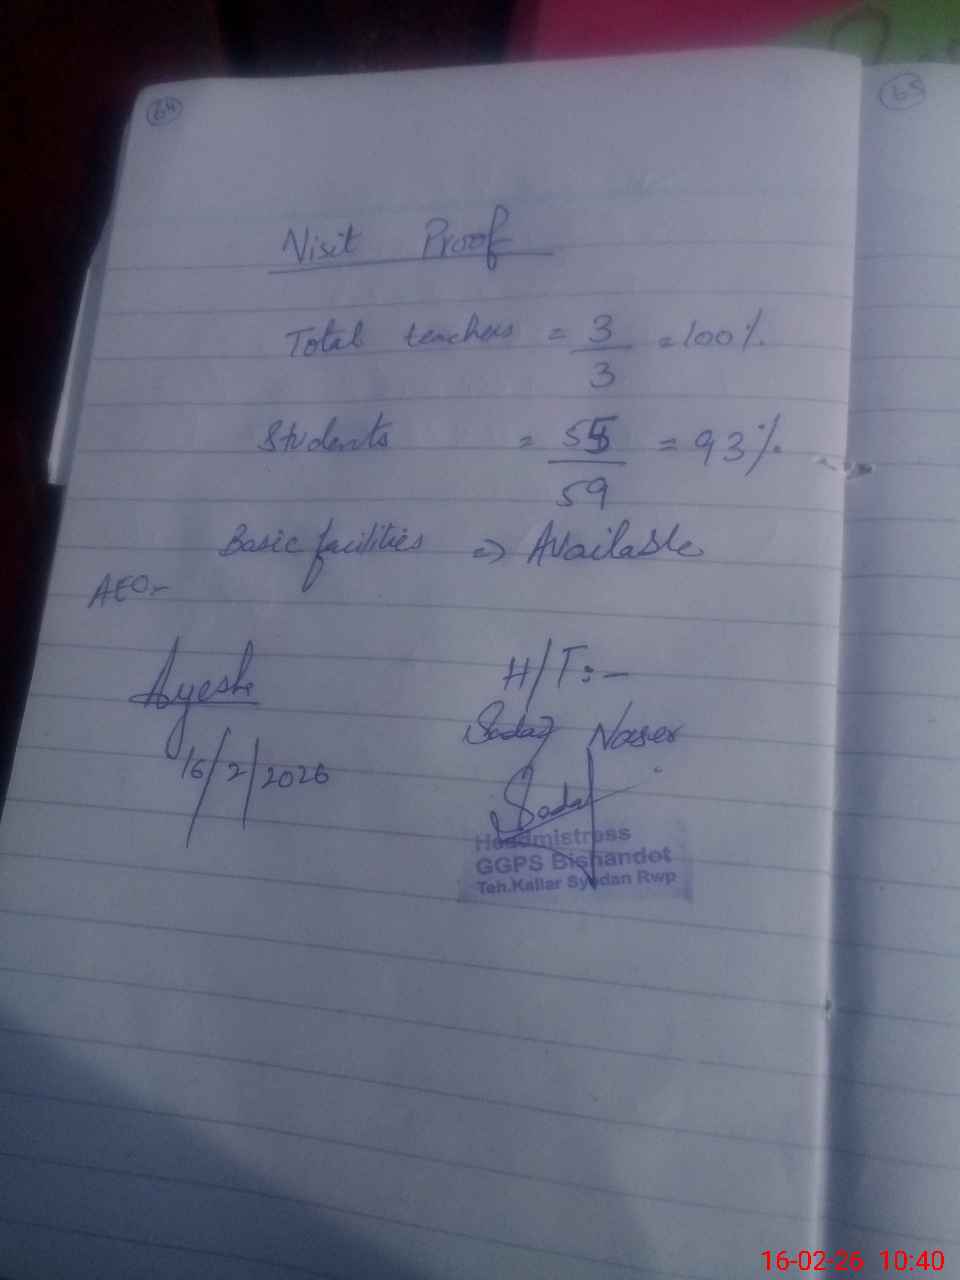 64
65
Visit Proof
Total teachers = 3/3 = 100%
Students = 55/59 = 93%
Basic facilities => Available
AEO:-
Ayesha
16/2/2026
H/T:-
Sadaf Naser
Sadaf
Headmistress
GGPS Bishandot
Teh.Kallar Syedan Rwp
16-02-26 10:40